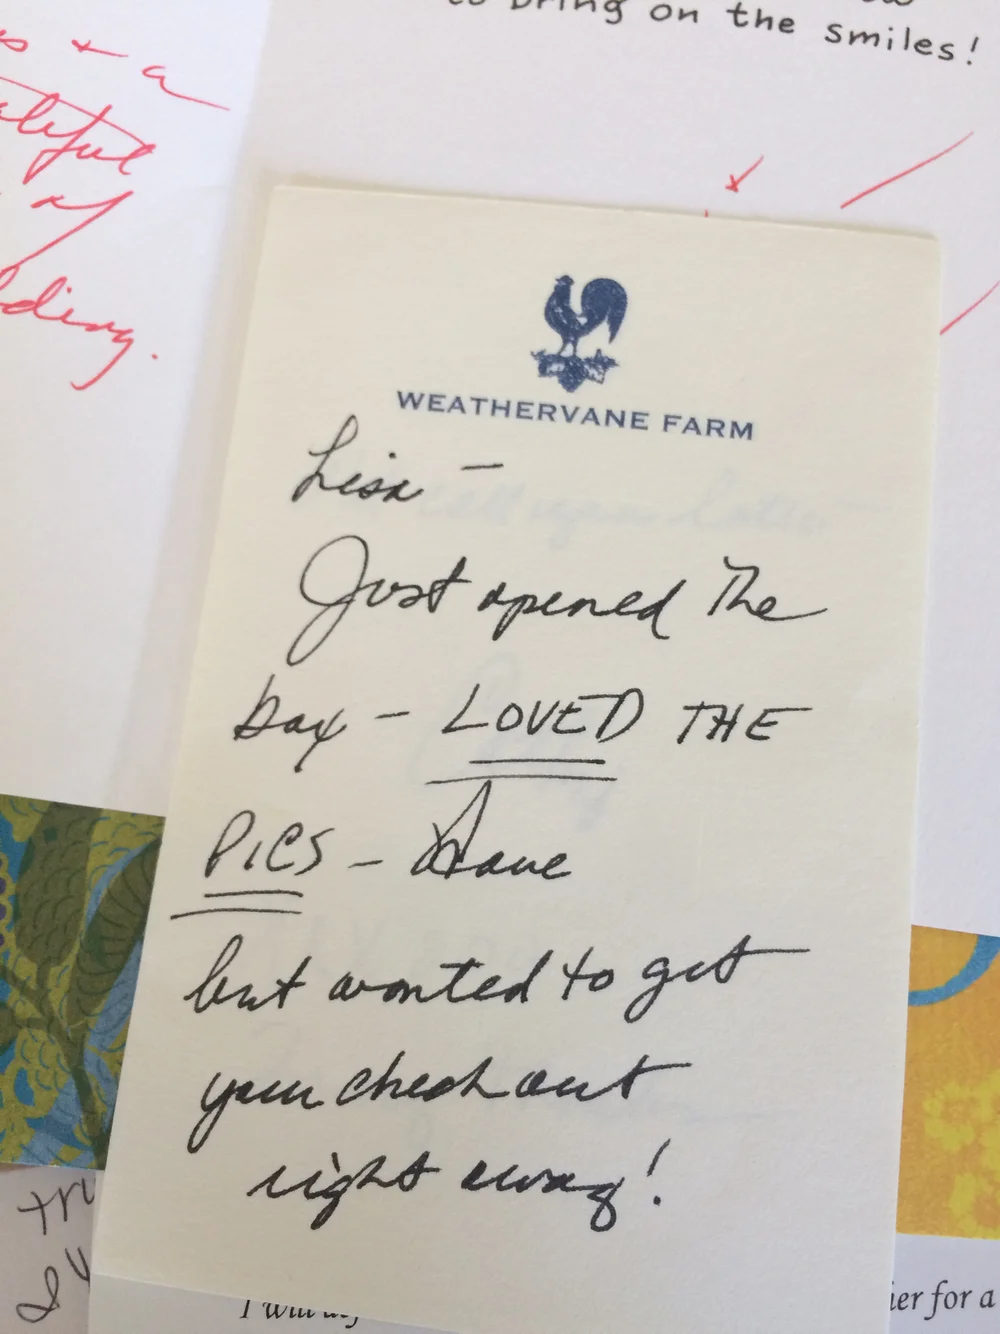 to bring on the smiles!
of
WEATHERVANE FARM
Lisa –
Just opened The
box – LOVED THE
PICS – Have
but wanted to get
your check out
right away!
I will
ier for a